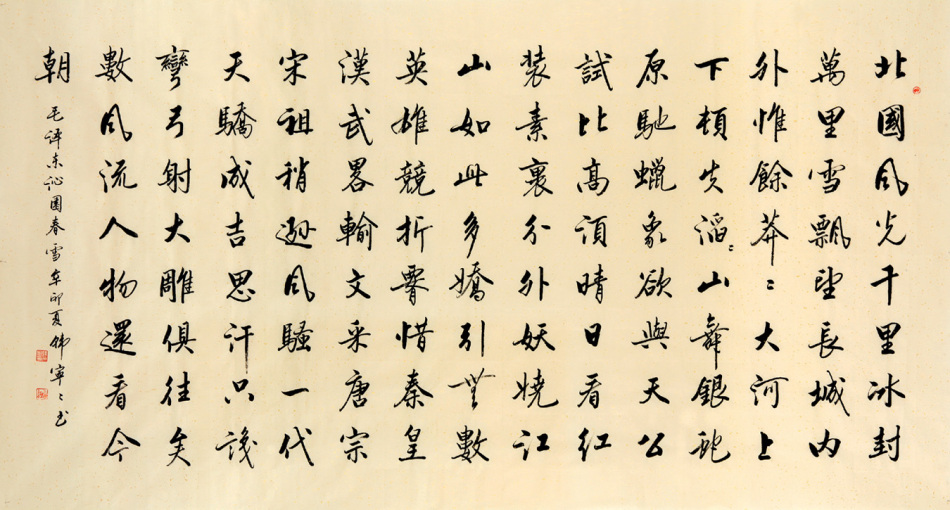 北國風光千里冰封
萬里雪飄望長城內
外惟餘莽〻大河上
下頓失滔〻山舞銀蛇
原馳蠟象欲與天公
試比高須晴日看紅
裝素裹分外妖嬈江
山如此多嬌引無數
英雄競折腰惜秦皇
漢武畧輸文采唐宗
宋祖稍遜風騷一代
天驕成吉思汗只識
彎弓射大雕俱往矣
數風流人物還看今
朝
毛澤東沁園春雪辛卯夏寧〻書